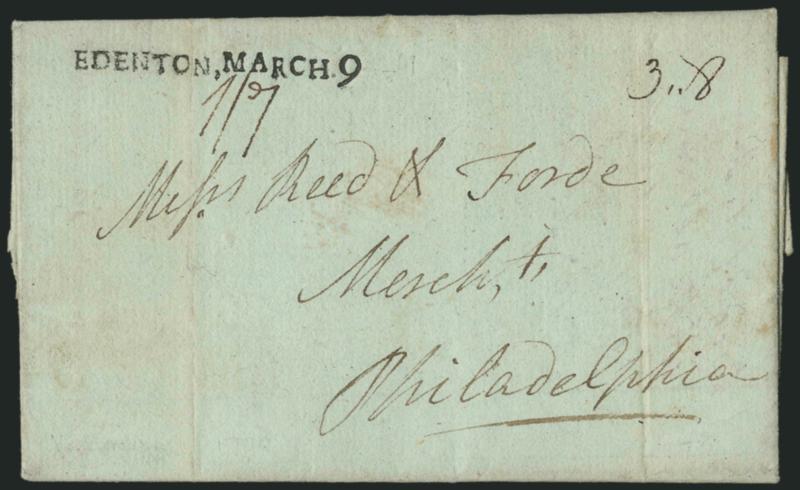 EDENTON, MARCH.9
3..8
1/7
Messrs Reed & Forde
Merch,t,
Philadelphia